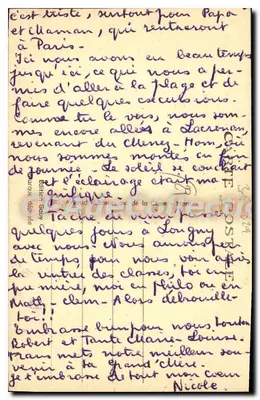 c'est triste, surtout pour Papa
et Maman, qui rentreront
à Paris.
Ici nous avons eu beau temps
jusqu'ici, ce qui nous a per-
mis d'aller à la plage et de
faire quelques excursions.
Comme tu le vois, nous som-
mes encore allés à Locronan,
revenant du Menez-Hom, où
nous sommes montés en fin
de journée. Le soleil se couchait
et l'éclairage était ma-
gnifique.
Tâche de venir passer
quelques jours à Longny
avec nous. Nous aurons peu
de temps, pour nous voir après
la rentrée des classes, toi en
première, moi en Philo ou en
Math-élem. Alors débrouille-
toi!!
Embrasse bien pour nous, tonton
Robert et Tante Marie-Louise.
Transmets notre meilleur sou-
venir à ta Grand'Mère.
je t'embrasse de tout mon cœur
Nicole
CARTE POSTALE